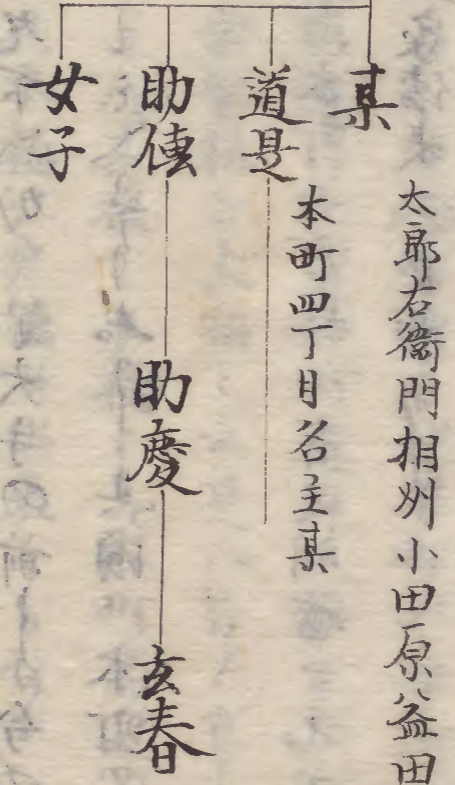 某
太郎右衞門相州小田原益田
道是
本町四丁目名主某
助傳
助慶
玄春
女子